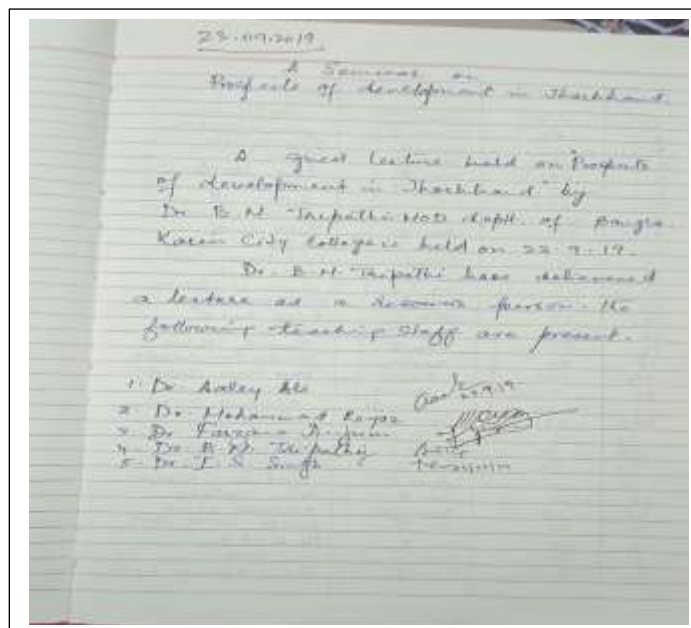 23.09.2019
A Seminar on
Prospects of development in Jharkhand
A guest lecture held on "Prospects
of development in Jharkhand" by
Dr. B N Tripathi HOD deptt. of
Karim City College is held on 22.9.19.
Dr. B N Tripathi have delivered
a lecture as a resource person. The
following teaching staff are present.
1. Dr Ali
2. Dr Mohammad
3. Dr
4. Dr B N Tripathi
5. Dr S Singh